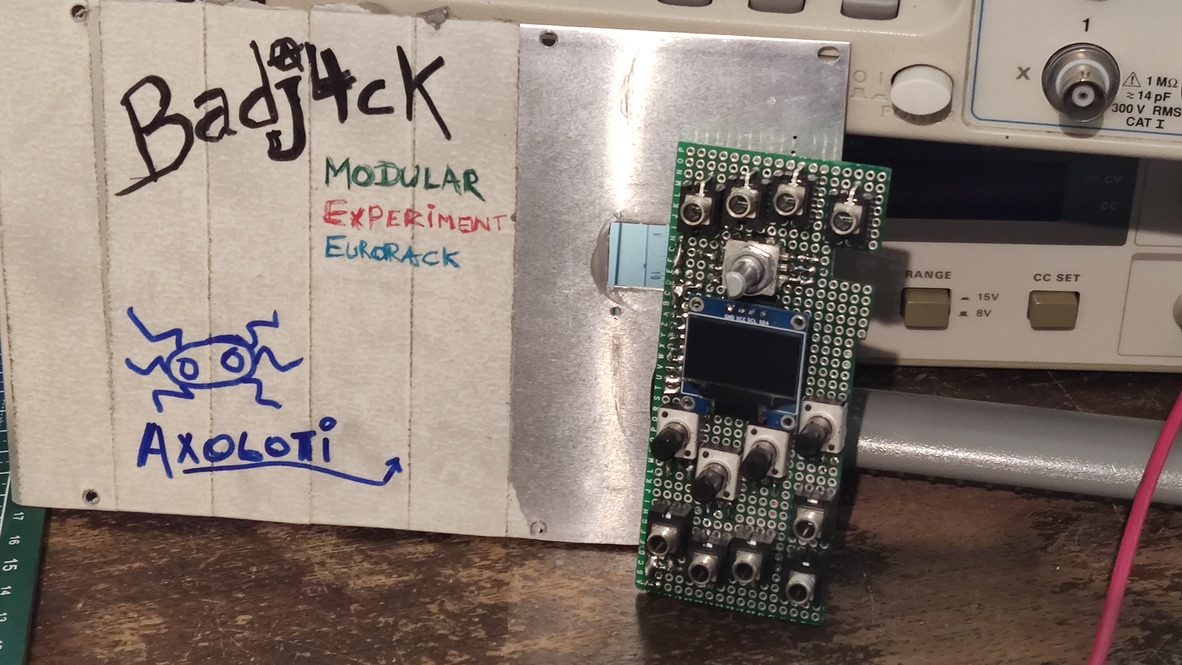 Badj4ck
MODULAR
EXPERIMENT
EURORACK
AXOLOTI
1
X
1 MΩ
≈14 pF
300 V RMS
CAT I
CV
CC
RANGE
CC SET
15V
8V
GND VCC SCL SDA
17
16
15
14
13